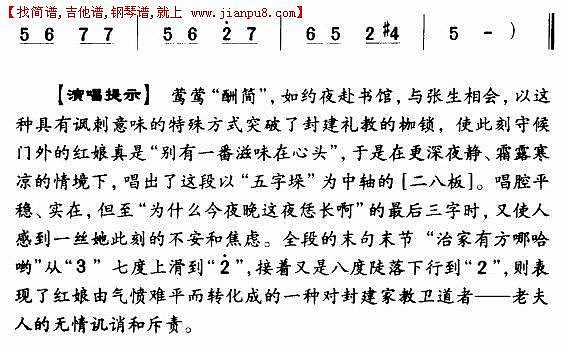 【找简谱,吉他谱,钢琴谱,就上 www.jianpu8.com】
5 6 7 7 | 5 6 2̇ 7 | 6 5 2 #4 | 5 - ) ‖
【演唱提示】 莺莺“酬简”，如约夜赴书馆，与张生相会，以这
种具有讽刺意味的特殊方式突破了封建礼教的枷锁，使此刻守候
门外的红娘真是“别有一番滋味在心头”，于是在更深夜静、霜露寒
凉的情境下，唱出了这段以“五字垛”为中轴的［二八板］。唱腔平
稳、实在，但至“为什么今夜晚这夜恁长啊”的最后三字时，又使人
感到一丝她此刻的不安和焦虑。全段的末句末节“治家有方哪哈
哟”从“3”七度上滑到“2̇”，接着又是八度陡落下行到“2”，则表
现了红娘由气愤难平而转化成的一种对封建家教卫道者——老夫
人的无情讥诮和斥责。